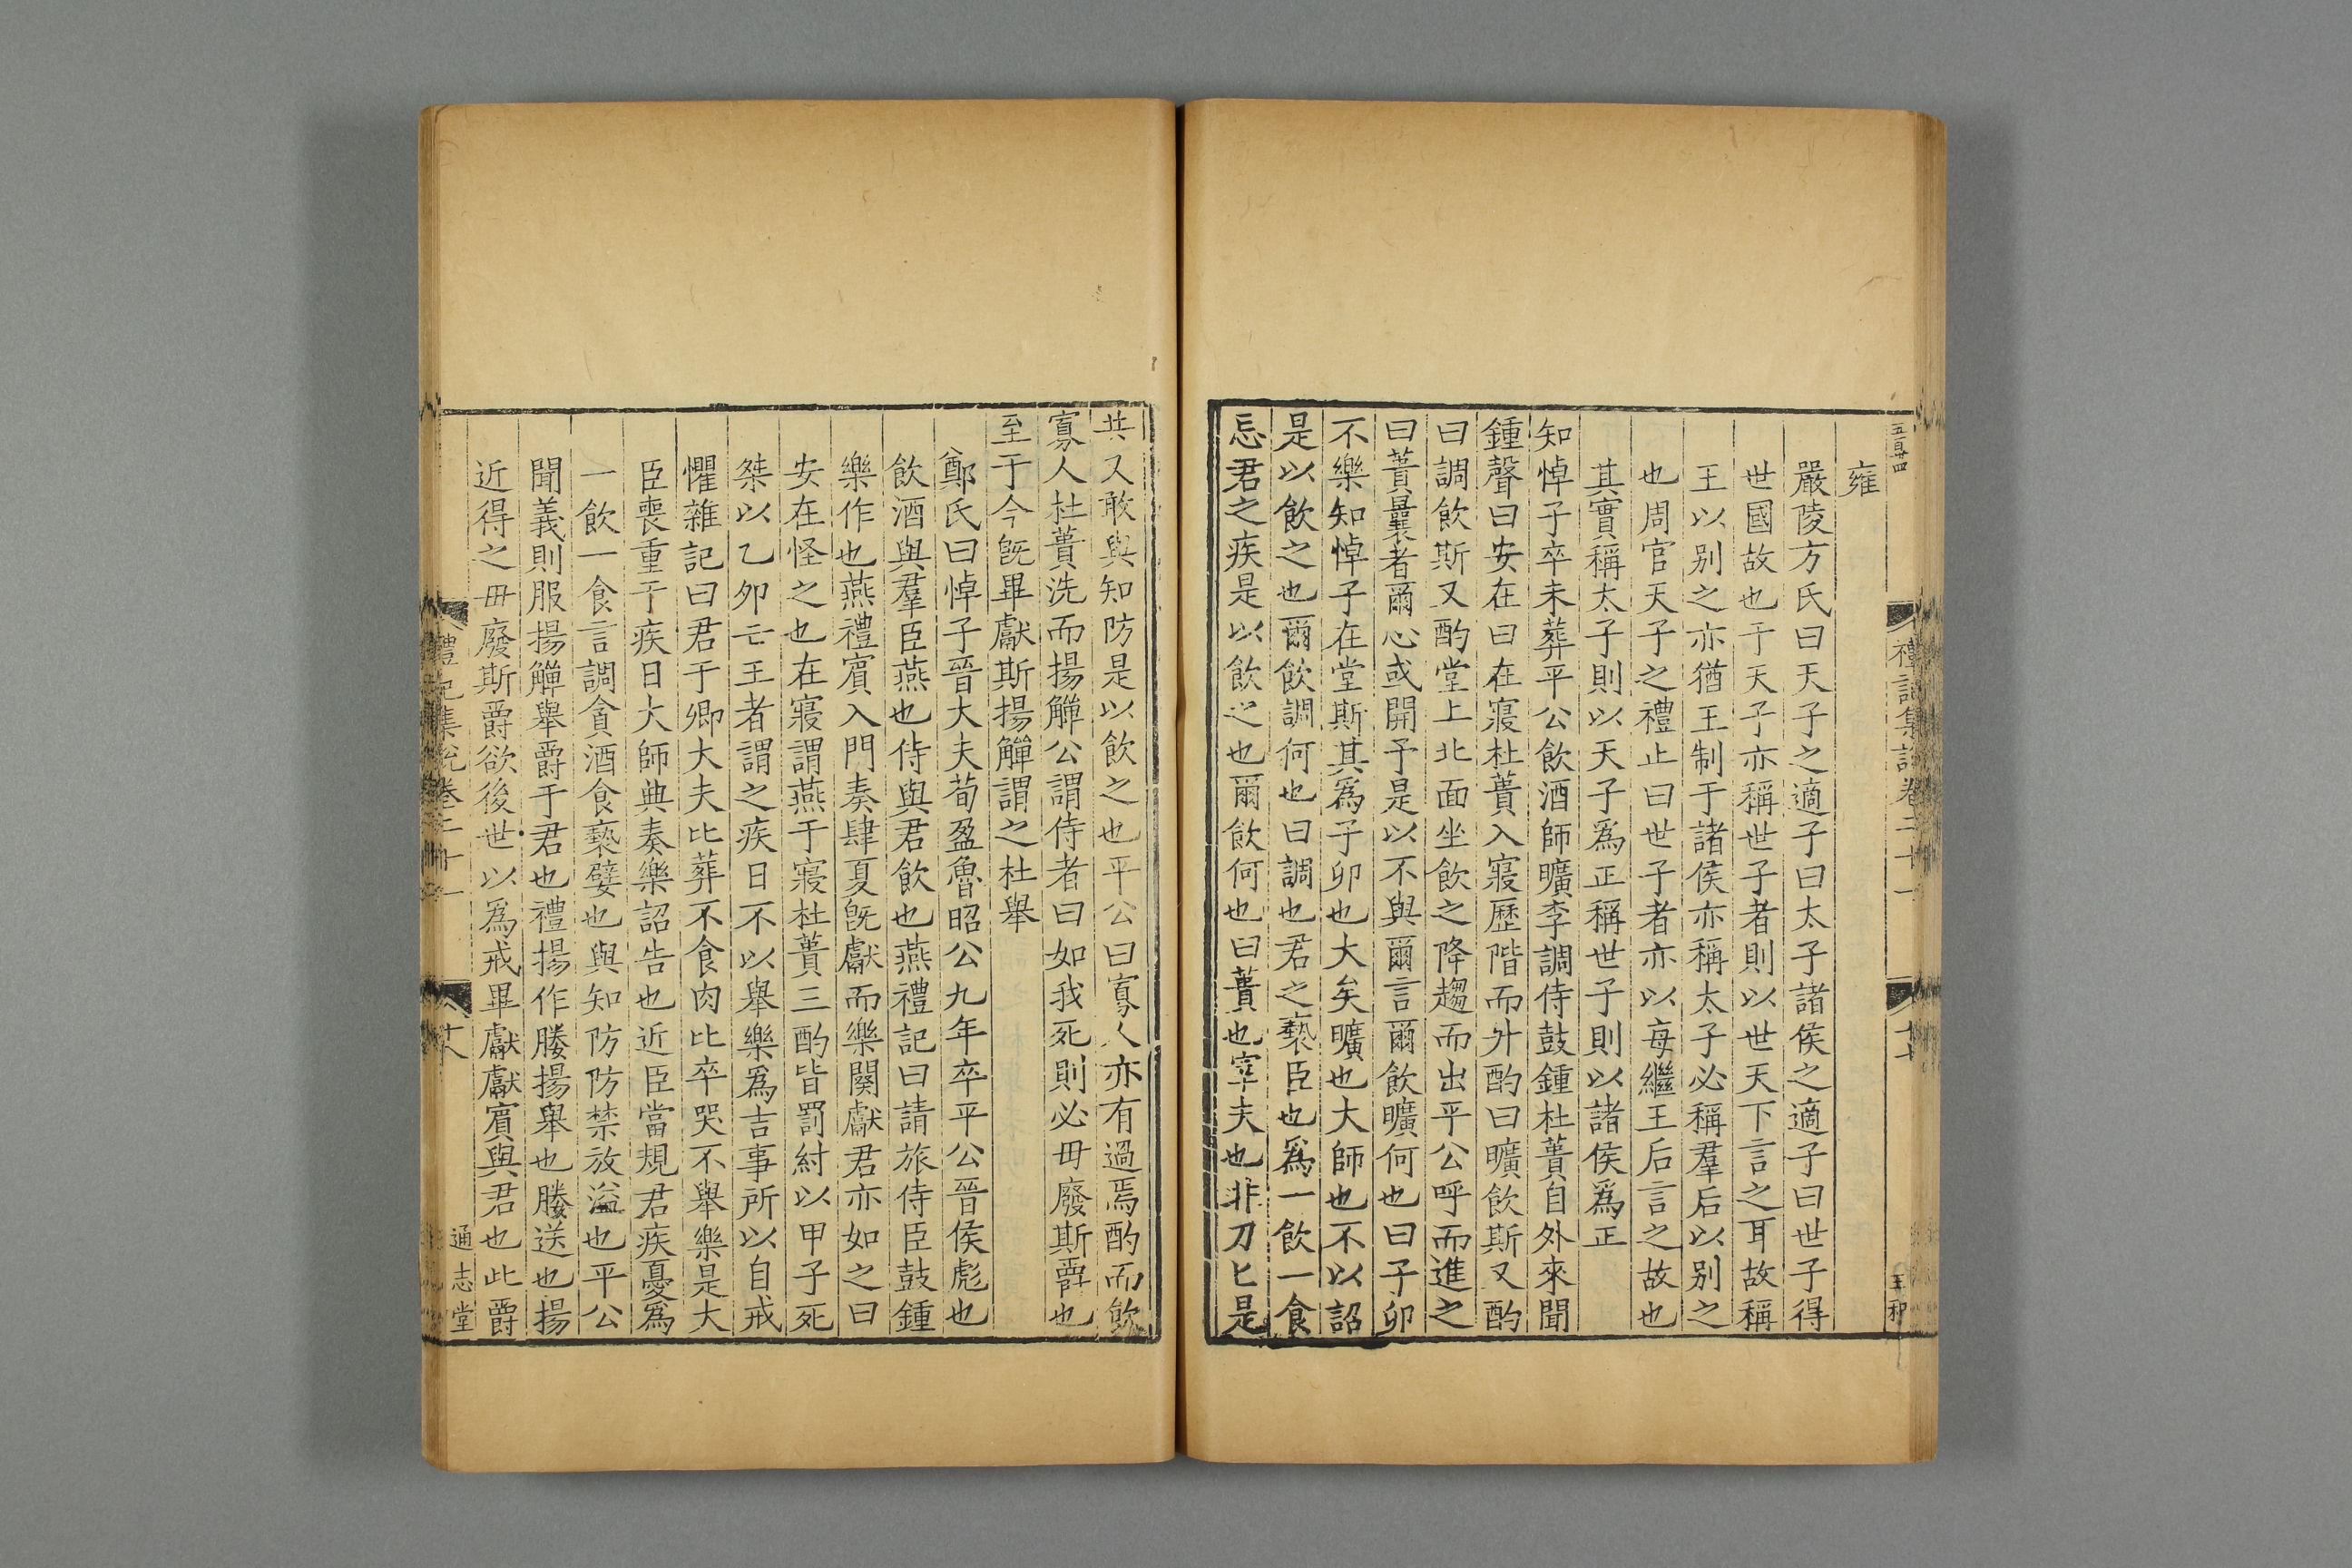 五百廿四
禮記集說卷二十一
十七
王和
雍
嚴陵方氏曰天子之適子曰太子諸侯之適子曰世子得
世國故也于天子亦稱世子者則以世天下言之耳故稱
王以別之亦猶王制于諸侯亦稱太子必稱羣后以別之
也周官天子之禮止曰世子者亦以每繼王后言之故也
其實稱太子則以天子爲正稱世子則以諸侯爲正
知悼子卒未葬平公飲酒師曠李調侍鼓鍾杜蕢自外來聞
鍾聲曰安在曰在寢杜蕢入寢歷階而升酌曰曠飲斯又酌
曰調飲斯又酌堂上北面坐飲之降趨而出平公呼而進之
曰蕢曩者爾心或開予是以不與爾言爾飲曠何也曰子卯
不樂知悼子在堂斯其爲子卯也大矣曠也大師也不以詔
是以飲之也爾飲調何也曰調也君之褻臣也爲一飲一食
忘君之疾是以飲之也爾飲何也曰蕢也宰夫也非刀匕是
共又敢與知防是以飲之也平公曰寡人亦有過焉酌而飲
寡人杜蕢洗而揚觶公謂侍者曰如我死則必毋廢斯爵也
至于今旣畢獻斯揚觶謂之杜舉
鄭氏曰悼子晉大夫荀盈魯昭公九年卒平公晉侯彪也
飲酒與羣臣燕也侍與君飲也燕禮記曰請旅侍臣鼓鍾
樂作也燕禮賔入門奏肆夏旣獻而樂闋獻君亦如之曰
安在怪之也在寢謂燕于寢杜蕢三酌皆罰紂以甲子死
桀以乙夘亡王者謂之疾日不以舉樂爲吉事所以自戒
懼雜記曰君于卿大夫比葬不食肉比卒哭不舉樂是大
臣喪重于疾日大師典奏樂詔告也近臣當規君疾憂爲
一飲一食言調貪酒食褻嬖也與知防防禁放溢也平公
聞義則服揚觶舉爵于君也禮揚作媵揚舉也媵送也揚
近得之毋廢斯爵欲後世以爲戒畢獻獻賔與君也此爵
禮記集說卷二十一
十八
通志堂